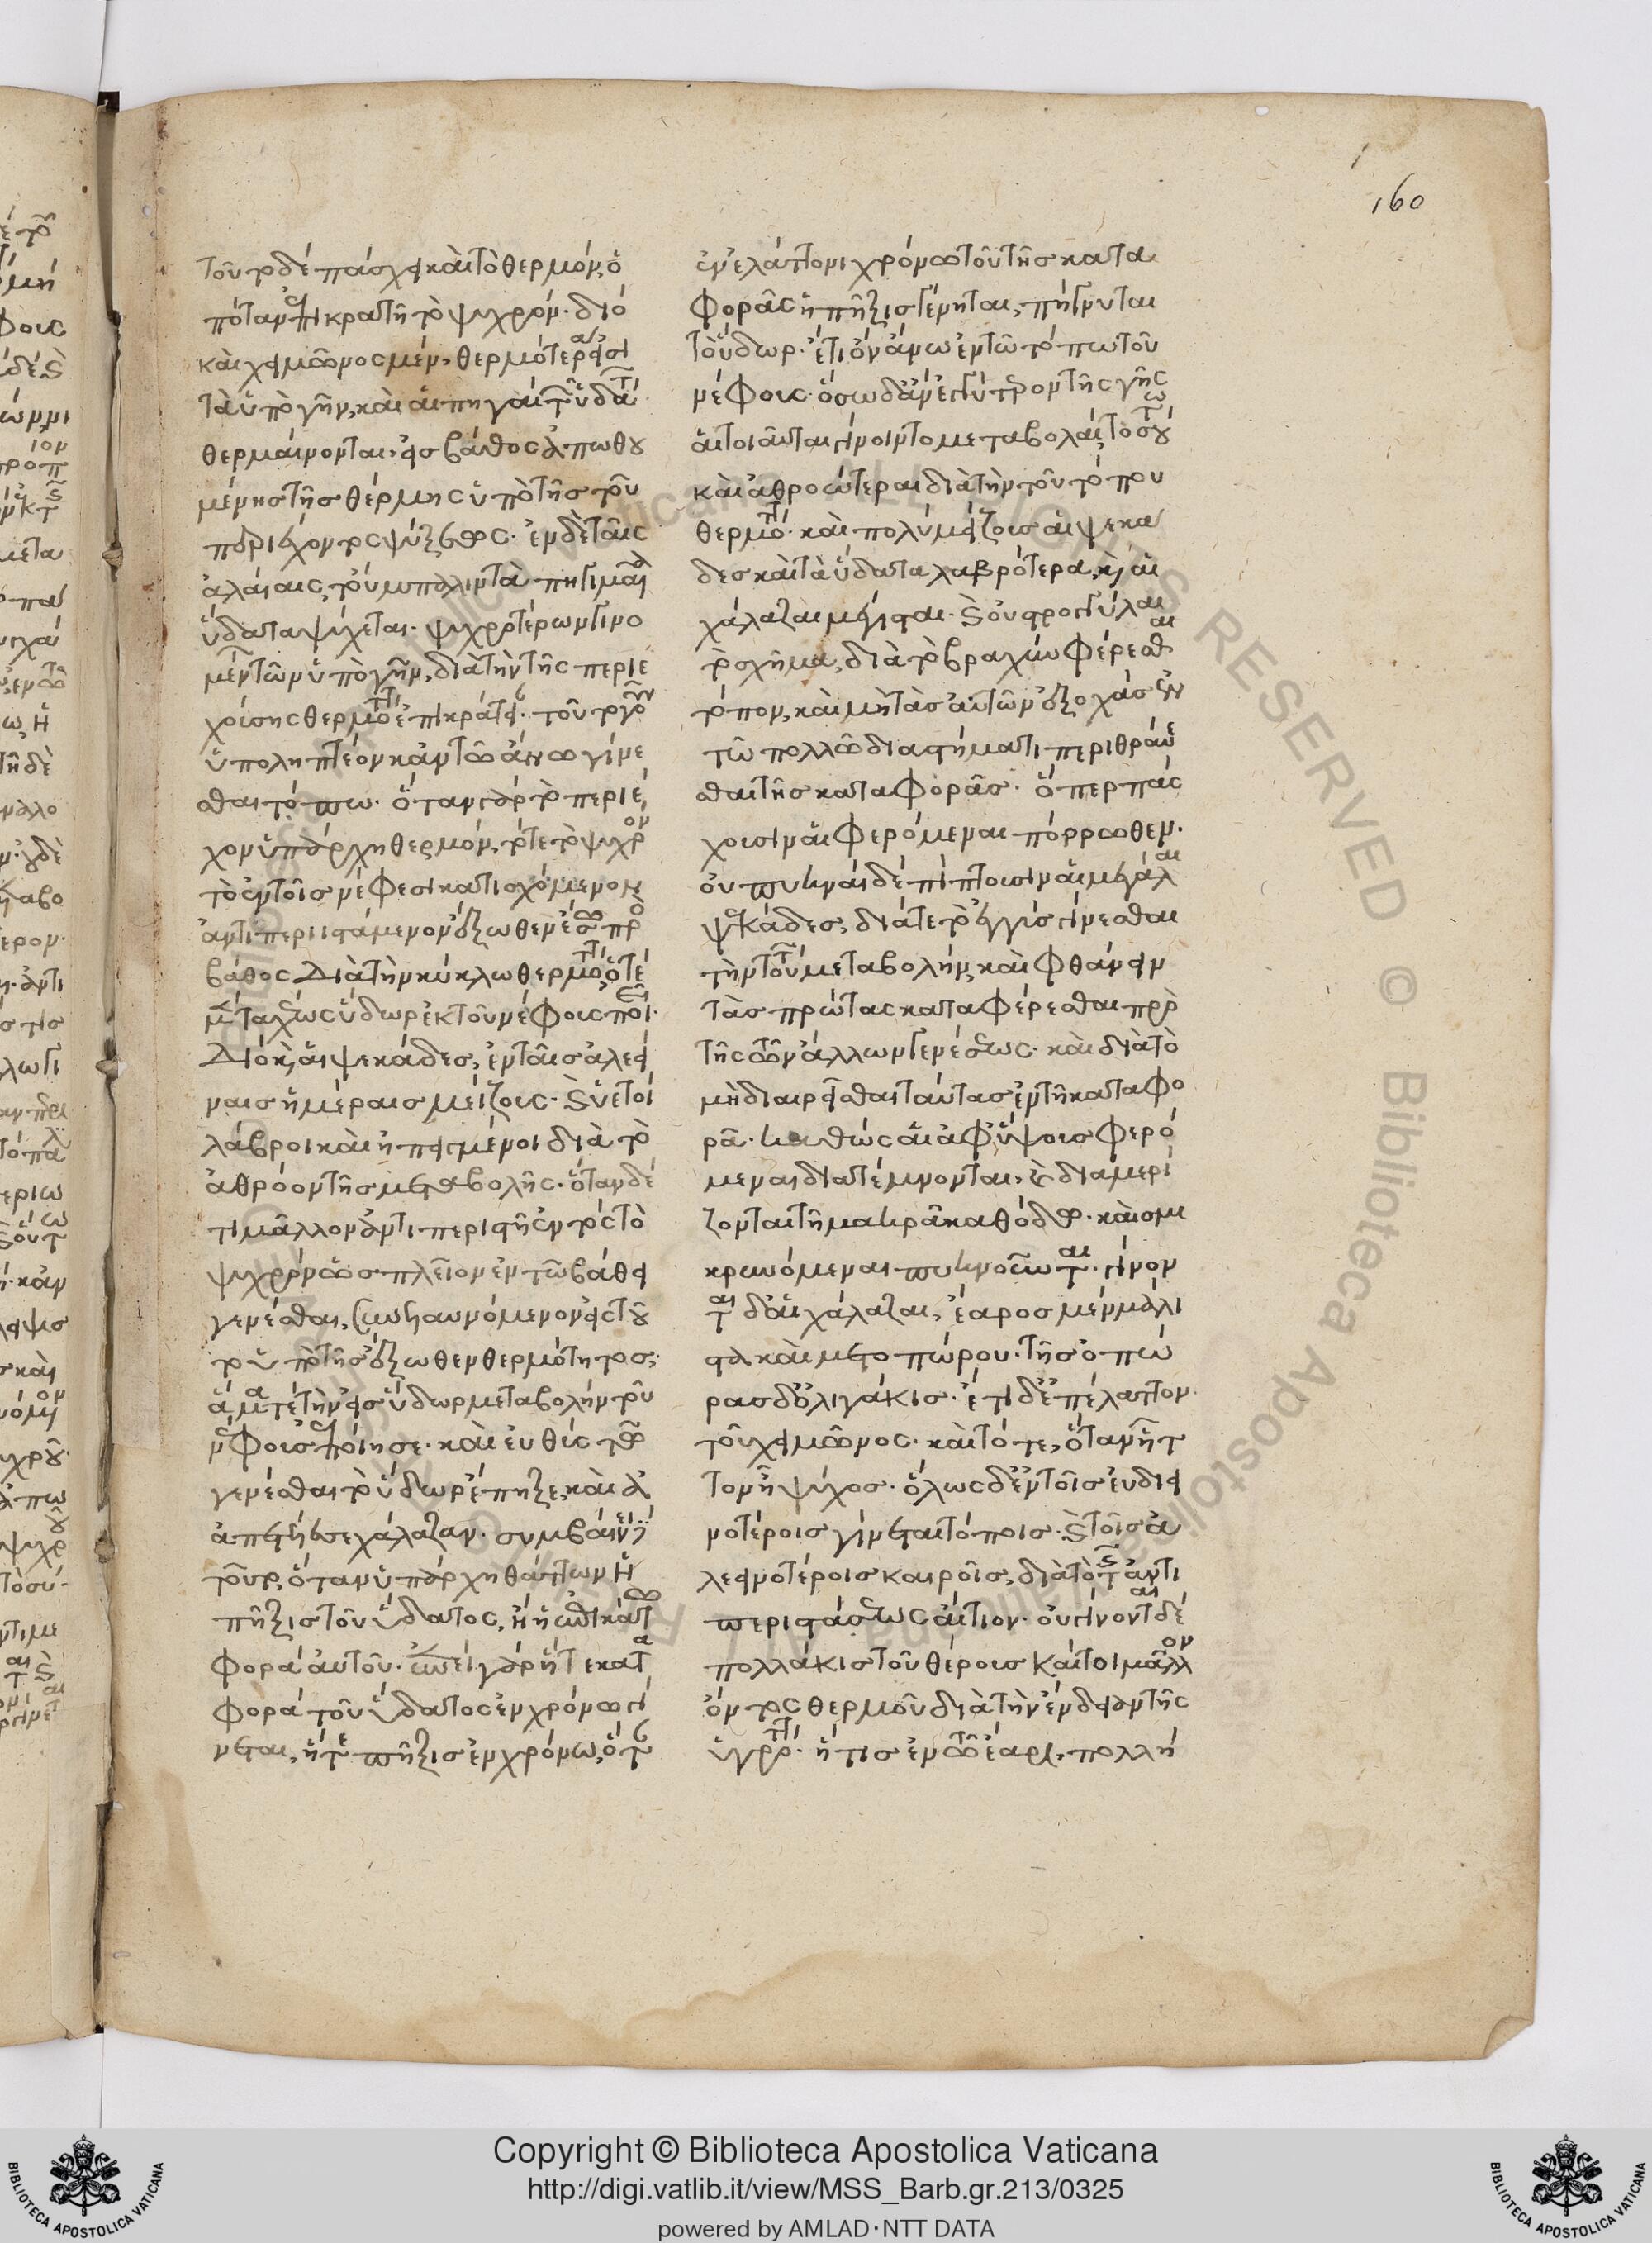 160
τοῦτο δὲ πάσχει καὶ τὸ θερμόν, ὁ
πόταν ἐπικρατῆ τὸ ψυχρόν. διὸ
καὶ χειμῶνος μὲν, θερμότερα εἰσὶ
τὰ ὑπὸ γῆν, καὶ αἱ πηγαὶ τῶν ὑδάτ
θερμαίνονται, εἰς βάθος ἀπωθου
μένης τῆς θέρμης ὑπὸ τῆς τοῦ
περιέχοντος ψύξεως. ἐν δὲ ταῖς
ἀλέαις, τοὔμπαλιν τὰ πηγιμαῖα
ὕδατα ψύχεται. ψυχροτέρων γινο
μένων τῶν ὑπὸ γῆν, διὰ τὴν τῆς περιε
χούσης θερμότητος ἐπικράτειαν. τοῦτο γοῦν
ὑποληπτέον κἀν τῶ ἄνω γίνε
σθαι τόπω. ὅταν γὰρ τὸ περιέ
χον ὑπάρχη θερμὸν, τότε τὸ ψυχρὸν
τὸ ἐν τοῖς νέφεσι κατισχόμενον
ἀντιπεριιστάμενον ἔξωθεν ἔσω πρὸς
βάθος διὰ τὴν κύκλω θερμότητα, ὁτὲ
μὲν ταχέως ὕδωρ ἐκ τοῦ νέφους ποιεῖ.
Διὸ καὶ αἱ ψεκάδες, ἐν ταῖς ἀλεει
ναῖς ἡμέραις μείζους. καὶ ὑετοὶ
λάβροι καὶ ἠπειγμένοι διὰ τὸ
ἀθρόον τῆς μεταβολῆς. ὅταν δέ
τι μᾶλλον ἀντιπεριστῆ ἐντὸς τὸ
ψυχρὸν ὡς πλεῖον ἐν τῶ βάθει
γενέσθαι, συνελαυνόμενον εἰς τοῦ
το ὑπὸ τῆς ἔξωθεν θερμότητος,
ἅμα τε τὴν εἰς ὕδωρ μεταβολὴν τοῦ
νέφους ἐποίησε. καὶ εὐθὺς τῶ
γενέσθαι τὸ ὕδωρ ἔπηξε, καὶ
ἀπετέλεσε χάλαζαν. συμβαίνει δὲ
τοῦτο, ὅταν ὑπάρχη θᾶττων ἡ
πῆξις τοῦ ὕδατος, ἢ ἡ ἐπὶ κάτω
φορὰ αὐτοῦ. ἐπεὶ γὰρ ἥ τε κατα
φορὰ τοῦ ὕδατος ἐν χρόνω γί
νεται, ἥ τε πῆξις ἐν χρόνω, ὅτε
ἐν ἐλάττονι χρόνω τοῦ τῆς κατα
φορᾶς ἡ πῆξις γένηται, πήγνυται
τὸ ὕδωρ. ἔτι ὂν ἄνω ἐν τῶ τόπω τοῦ
νέφους. ὅσω δ' ἂν ἐγγύτερον τῆς γῆς
αἱ τοιαῦται γίνοιντο μεταβολαὶ, τοσού
καὶ ἀθροώτεραι διὰ τὴν τοῦ τόπου
θερμότητα. καὶ πολὺ μείζους αἱ ψεκά
δες καὶ τὰ ὕδατα λαβρότερα, καὶ αἱ
χάλαζαι μέγισται. καὶ οὐ στρογγύλαι
τὸ σχῆμα, διὰ τὸ βραχὺν φέρεσθαι
τόπον, καὶ μὴ τὰς αὐτῶν ἐξοχὰς ἐν
τῶ πολλῶ διαστήματι περιθραύε
σθαι τῆς καταφορᾶς. ὅπερ πάσ
χουσιν αἱ φερόμεναι πόρρωθεν.
οὐ πυκναὶ δὲ πίπτουσιν αἱ μεγάλαι
ψεκάδες, διά τε τὸ ἐγγὺς γίνεσθαι
τὴν τούτων μεταβολὴν, καὶ φθάνειν
τὰς πρώτας καταφέρεσθαι πρὸ
τῆς τῶν ἄλλων γενέσεως. καὶ διὰ τὸ
μὴ διαιρεῖσθαι ταύτας ἐν τῆ καταφο
ρᾶ. καθὼς αἱ ἀφ' ὕψους φερό
μεναι διατέμνονται, καὶ διαμερί
ζονται τῆ μακρᾶ καθόδω. καὶ σμι
κρυνόμεναι πυκνοῦνται. γίνον
ται δ' αἱ χάλαζαι, ἔαρος μὲν μάλι
στα καὶ μετοπώρου. τῆς ὀπώ
ρας δ' ὀλιγάκις. ἔτι δ' ἐπέλαττον
τοῦ χειμῶνος. καὶ τότε, ὅταν ἧτ
τον ἦ ψύχος. ὅλως δ' ἐν τοῖς εὐδιει
νοτέροις γίνεται τόποις. καὶ τοῖς ἀ
λεεινοτέροις καιροῖς, διὰ τὸ τῆς ἀντι
περιστάσεως αἴτιον. οὐ γίνονται δὲ
πολλάκις τοῦ θέρους καίτοι μᾶλλον
ὄντος θερμοῦ διὰ τὴν ἔνδειαν τῆς
ὑγρότητος. ἥτις ἐν τῶ ἔαρι, πολλὴ
Copyright © Biblioteca Apostolica Vaticana
http://digi.vatlib.it/view/MSS_Barb.gr.213/0325
powered by AMLAD·NTT DATA
BIBLIOTECA APOSTOLICA VATICANA
BIBLIOTECA APOSTOLICA VATICANA